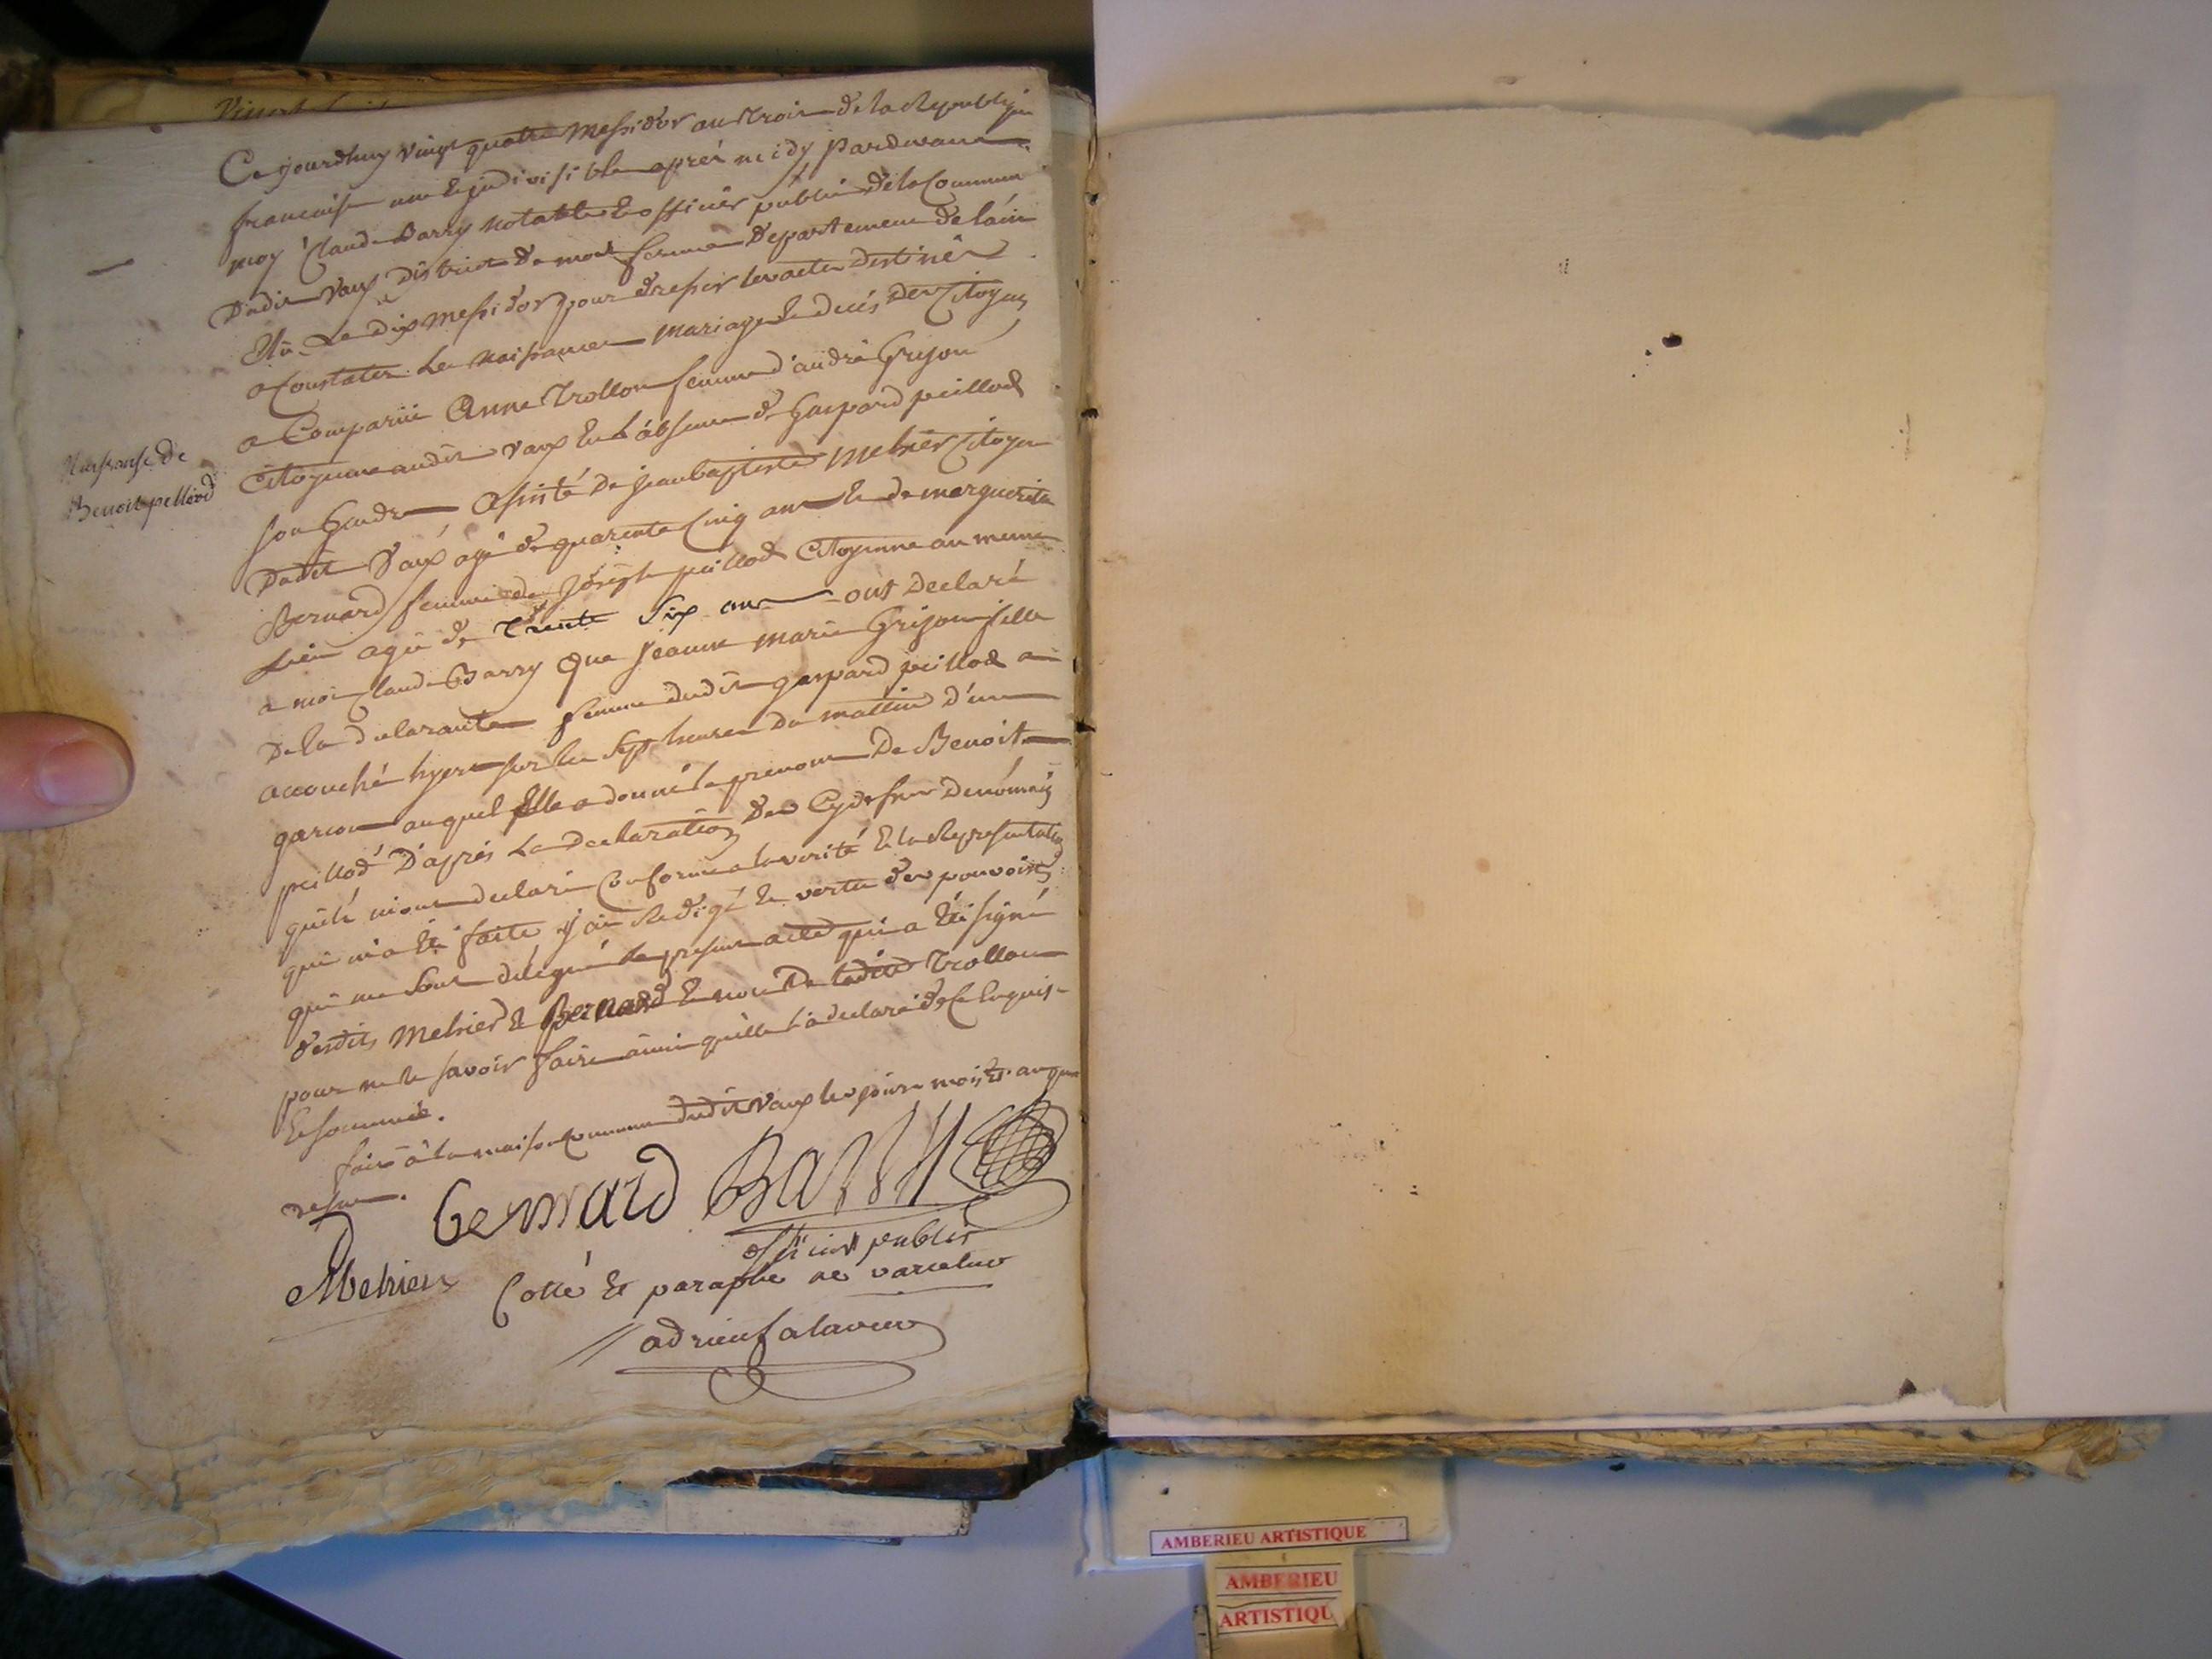 Ce jourdhuy vingt quatre Messidor an trois de la Republique
francaise une et indivisible apres midy Pardevant
moy Claude Barry notable et officier public de la Commune
Dudit Vaux District de mont ferme Departement de l'ain
Elû Le dix messidor pour dresser les actes destinés
a Constater Les Naissances mariages et decés Des Citoyens
a Comparüe Anne Trollon femme d'andré Grijon
Citoyenne audit Vaux En L'absence de Gaspard peillod
son Gendre Assisté De jean baptiste Mehier Citoyen
Dudit Vaux agé de quarente Cinq ans et de marguerite
Bernard femme de Joseph peillod Citoyenne au meme
Lieu agée de Trente Six ans ont Declaré
a moi Claude Barry Que Jeanne Marie Grijon fille
De la declarante femme dudit gaspard peillod a
accouché hyere sur les Sept heures Du mattin d'un
garcon auquel Elle a donné le prenom De Benoit
peillod D'aprés La declaration des Cydessus Denomés
quils m'ont declaré Conforme a la verité Et la Representation
qui m'a Eté faite j'ai Redigé En vertu des pouvoirs
qui me sont delegué le present acte qui a Eté signé
desdits Mehier et Bernard Et non De ladite Trollon
pour ne le savoir faire ainsi qu'elle l'a declaré de ce Enquise
Et sommée.
fait a la maison Commune dudit Vaux les jours mois et an que
dessus.
Naissanse de
Benoit pelliod
bernard Barry
officier public
Mehier Cotté Et paraphé ne varietur
adrien
AMBERIEU ARTISTIQUE
AMBERIEU
ARTISTIQU